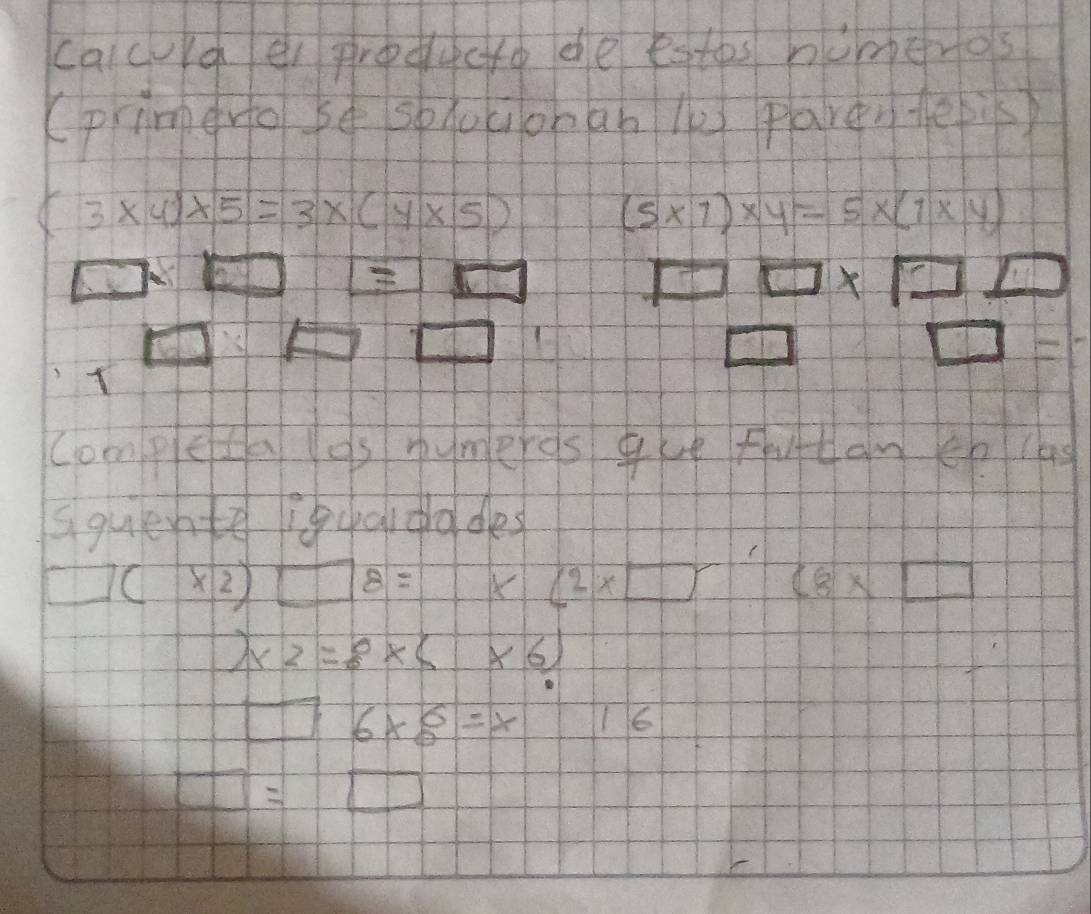 calcula el producto de estos números
(primero se solucionan los parentesis)
(3x4)x5=3x(4x5) (5x7)x4=5x(7x4)
x =
x
x
completa los numeros que faltan en las
siguente igualdades
( x2) 8= x (2x (8x
)x2=8x( x6)
6x8=x 16
=